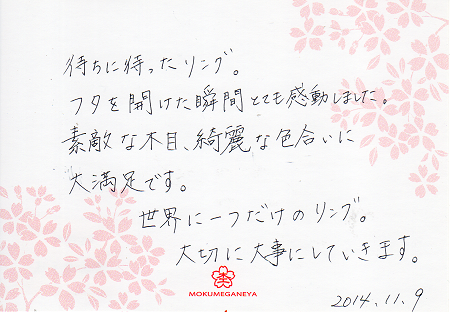 待ちに待ったリング。
フタを開けた瞬間とても感動しました。
素敵な木目、綺麗な色合いに
大満足です。
世界に一つだけのリング。
大切に大事にしていきます。
MOKUMEGANEYA
2014.11.9